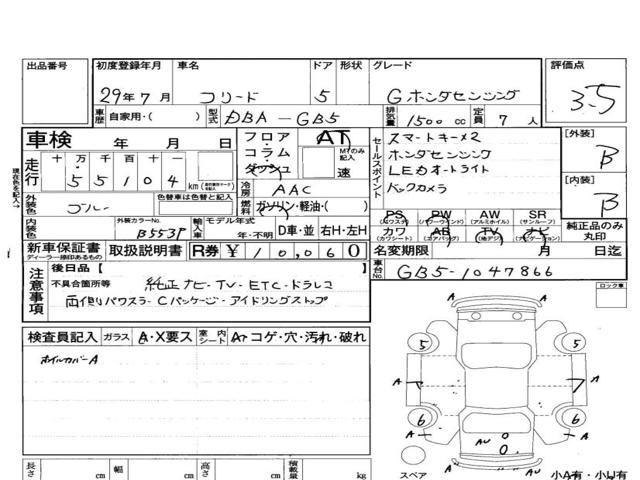 出品番号 初度登録年月 車名 ドア 形状 グレード 評価点
29年7月 フリード 5 Gホンダセンシング 3.5
車歴 自家用・( ) 型式 DBA-GB5 排気量 1500cc 定員 7人
車検 年 月 日
フロア・コラム・ダッシュ AT MTのみ記入 速
セールスポイント
スマートキー×2
ホンダセンシング
LEDオートライト
バックカメラ
[外装] B
[内装] B
現在色を記入↓
走行 十万 万 千 百 十 一
55104 km
冷房 AAC
燃料 ガソリン・軽油・( )
外装色 ブルー 色替車は色替と記入
内装色 外装カラーNo. B553P
輸入車 モデル年式 年・不明 D車・並 右H・左H
PS (パワステ) PW (パワーウインド) AW (アルミホイル) SR (サンルーフ)
カワ (カワシート) AB (エアバッグ) TV (地デジ) ナビ (ナビゲーション)
純正品のみ丸印
新車保証書 ディーラー捺印あるもの 取扱説明書 R券 ¥10,060
名変期限 月 日迄
車台No. GB5-1047866
注意事項 後日品【 】
不具合箇所等 純正ナビ・TV・ETC・ドラレコ
両側パワスラ・Cパッケージ・アイドリングストップ
ロック車
検査員記入 ガラス A・X要ス 室内シート AT コゲ・穴・汚れ・破れ
ホイルカバーA
A
5 5
A A
7
6 6
A A
AU
A
スペア
小A有・小U有
長さ cm 幅 cm 高さ cm 積載量 kg